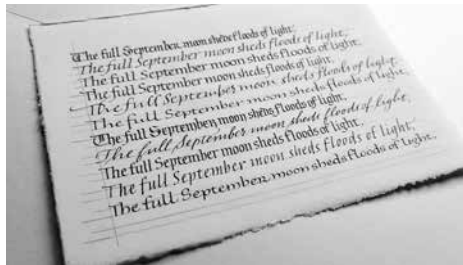 The full September moon sheds floods of light,
The full September moon sheds floods of light,
The full September moon sheds floods of light,
The full September moon sheds floods of light,
The full September moon sheds floods of light,
The full September moon sheds floods of light,
The full September moon sheds floods of light,
The full September moon sheds floods of light,
The full September moon sheds floods of light,
The full September moon sheds floods of light,
The full September moon sheds floods of light,